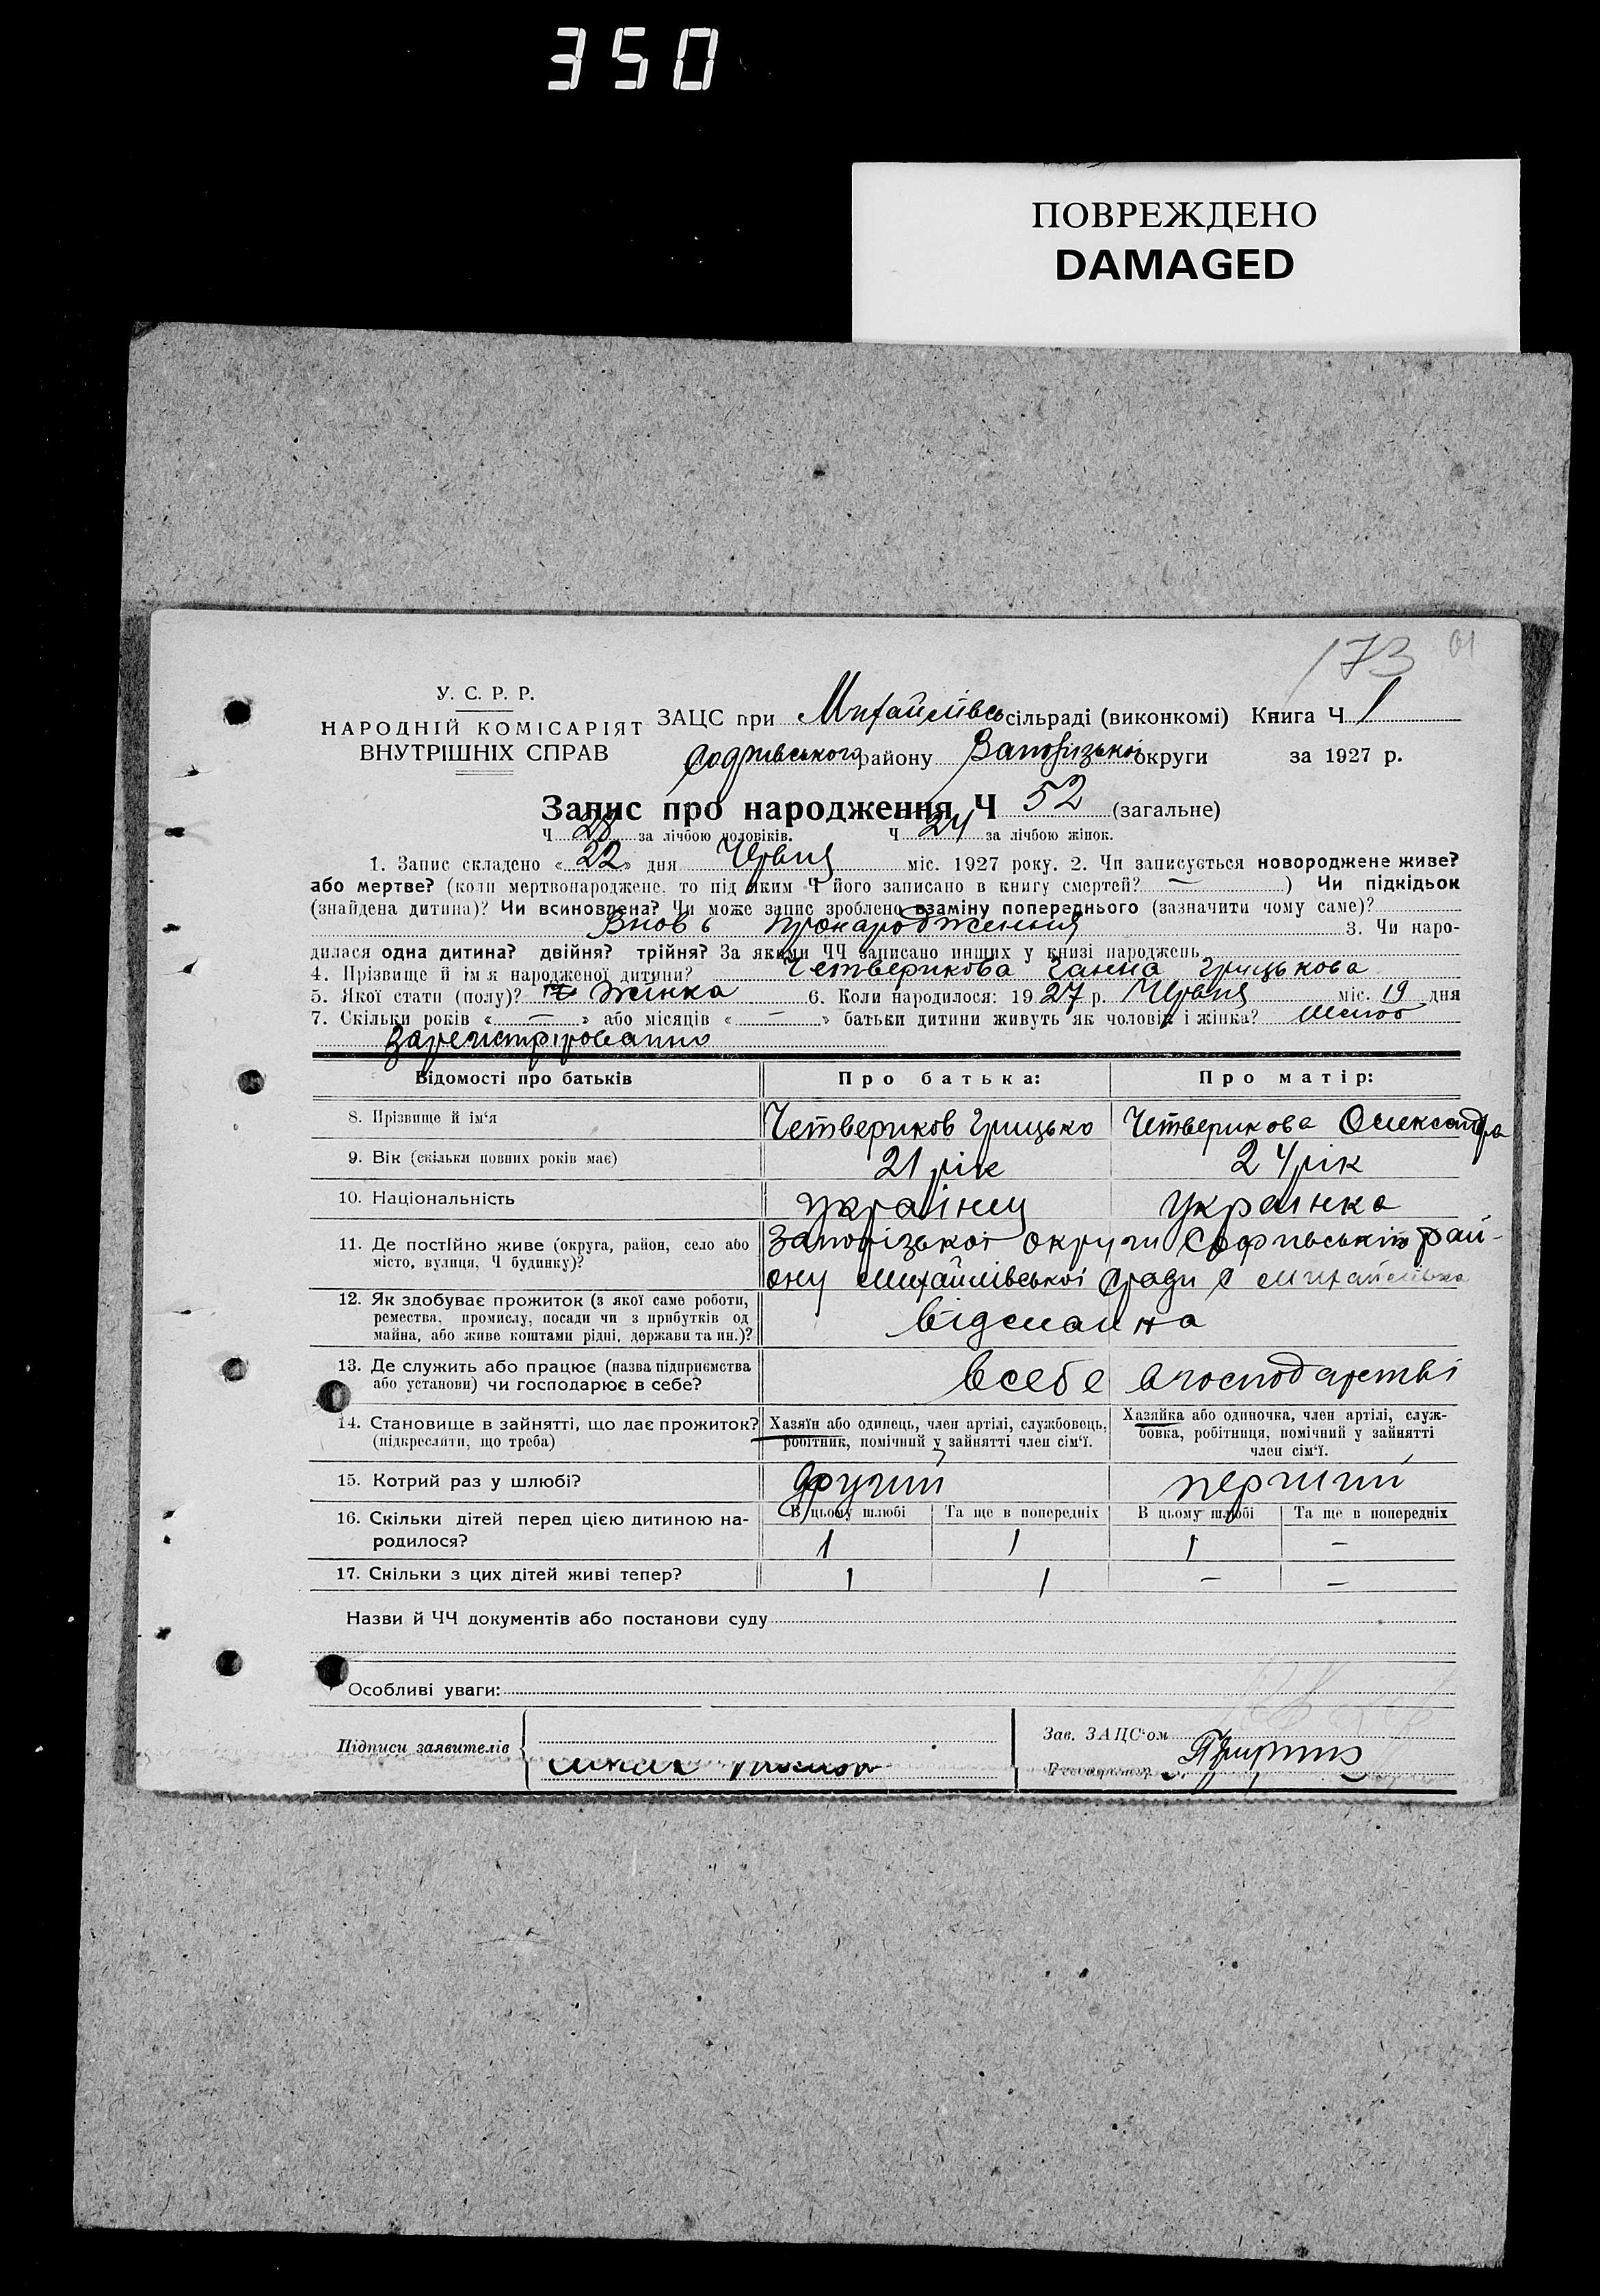 350
ПОВРЕЖДЕНО
DAMAGED
173 91
У. С. Р. Р.
НАРОДНІЙ КОМІСАРІЯТ
ВНУТРІШНІХ СПРАВ
ЗАЦС при Михайлівсь сільраді (виконкомі) Книга Ч 1
Софиівського району Запорізької округи за 1927 р.
Запис про народження Ч 52 (загальне)
Ч 28 за лічбою чоловіків. Ч 24 за лічбою жінок.
1. Запис складено «22» дня Червня міс. 1927 року. 2. Чи записується новороджене живе?
або мертве? (коли мертвонароджене, то під яким Ч його записано в книгу смертей? — ) Чи підкідьок
(знайдена дитина)? Чи всиновлена? Чи може запис зроблено взаміну попереднього (зазначити чому саме)?
Вновь пронародження 3. Чи наро-
дилася одна дитина? двійня? трійня? За якими ЧЧ записано инших у книзі народжень
4. Прізвище й ім'я народженої дитини? Четверикова Ганна Грицькова
5. Якої стати (полу)? Жінка 6. Коли народилося: 1927 р. Червня міс. 19 дня
7. Скільки років « — » або місяців « — » батьки дитини живуть як чоловік і жінка?
Зарегистріровано
Відомості про батьків Про батька: Про матір:
8. Прізвище й ім'я Четвериков Грицько Четверикова Олександра
9. Вік (скільки повних років має) 21 рік 24 рік
10. Національність Українец Украинка
11. Де постійно живе (округа, район, село або
місто, вулиця, Ч будинку)?
Запорізької округи Софиівській рай-
ону Михайлівської с ради с Михайлівка
12. Як здобуває прожиток (з якої саме роботи,
ремества, промислу, посади чи з прибутків од
майна, або живе коштами рідні, держави та ин.)?
від маина
13. Де служить або працює (назва підприємства
або установи) чи господарює в себе?
в себе в господарстві
14. Становище в зайнятті, що дає прожиток?
(підкреслити, що треба)
Хазяїн або одинець, член артілі, службовець,
робітник, помічний у зайнятті член сім'ї.
Хазяйка або одиночка, член артілі, служ-
бовка, робітниця, помічний у зайнятті
член сім'ї.
15. Котрий раз у шлюбі? другий первий
16. Скільки дітей перед цією дитиною на-
родилося?
В цьому шлюбі Та ще в попередніх В цьому шлюбі Та ще в попередніх
1 1 1 —
17. Скільки з цих дітей живі тепер? 1 1 — —
Назви й ЧЧ документів або постанови суду
Особливі уваги:
Підписи заявителів
Зав. ЗАЦС'ом